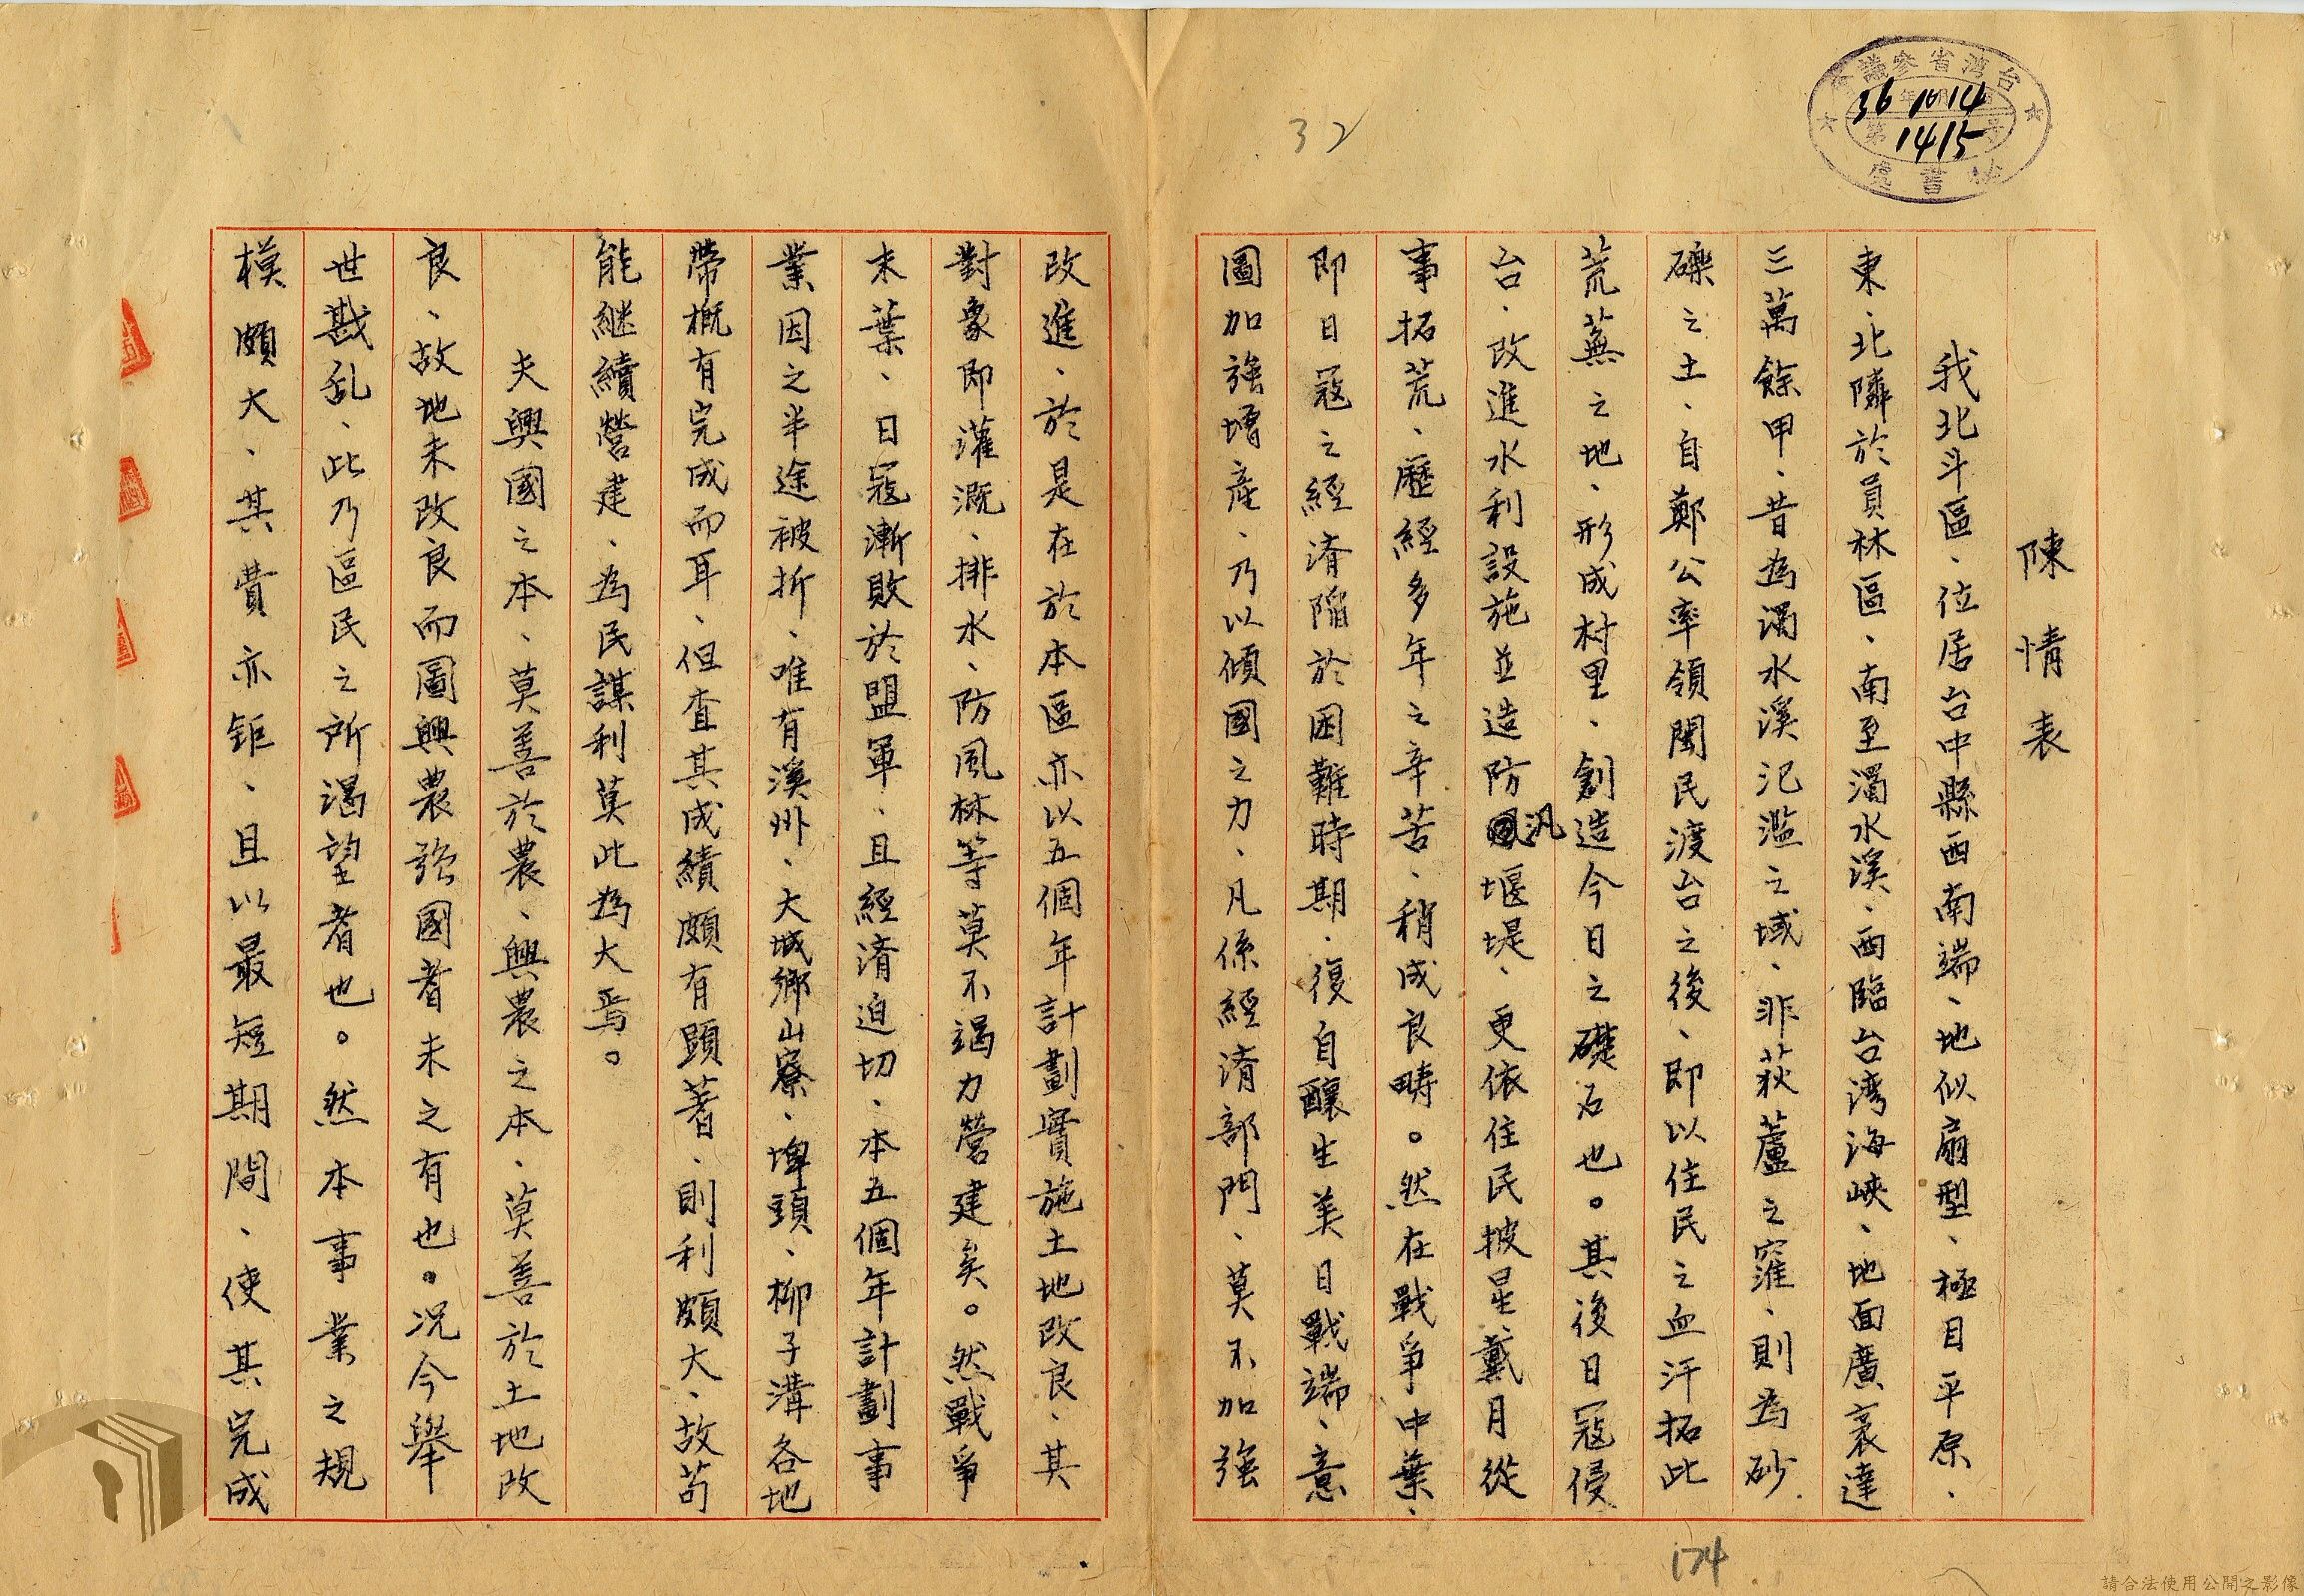 台灣省參議會
36年10月14日
第1415号
秘書處
32
陳情表
我北斗區、位居台中縣西南端、地似扇型、極目平原、
東、北隣於員林區、南至濁水溪、西臨台湾海峽、地面廣袤達
三萬餘甲、昔為濁水溪氾濫之域、非荻蘆之窪、則為砂
礫之土、自鄭公率領閩民渡台之後、即以住民之血汗拓此
荒蕪之地、形成村里、創造今日之礎石也。其後日寇侵
台、改進水利設施並造防汎堰堤、更依住民披星戴月從
事拓荒、歷經多年之辛苦、稍成良疇。然在戰爭中葉、
即日寇之經済陥於困難時期、復自釀生美日戰端、意
圖加強增產、乃以傾國之力、凡係經済部門、莫不加強
改進、於是在於本區亦以五個年計劃實施土地改良、其
對象即灌溉、排水、防風林等莫不竭力營建矣。然戰爭
末葉、日寇漸敗於盟軍、且經済迫切、本五個年計劃事
業因之半途被折、唯有溪州、大城鄉山寮、埤頭、柳子溝各地
帶概有完成而耳、但查其成績頗有顕著、則利頗大、故苟
能継續營建、為民謀利莫此為大焉。
夫興國之本、莫善於農、興農之本、莫善於土地改
良、故地未改良而圖興農强國者未之有也。況今舉
世戡乱、此乃區民之所渴望者也。然本事業之規
模頗大、其費亦鉅、且以最短期間、使其完成
174
請合法使用公開之影像